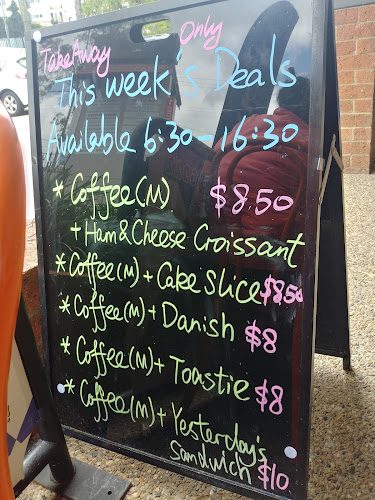 TakeAway Only
This week's Deals
Available 6:30-16:30
* Coffee(M) $8.50
+ Ham & Cheese Croissant
* Coffee(M) + Cake Slice $8.50
* Coffee(M) + Danish $8
* Coffee(M) + Toastie $8
* Coffee(M) + Yesterday's
Sandwich $10